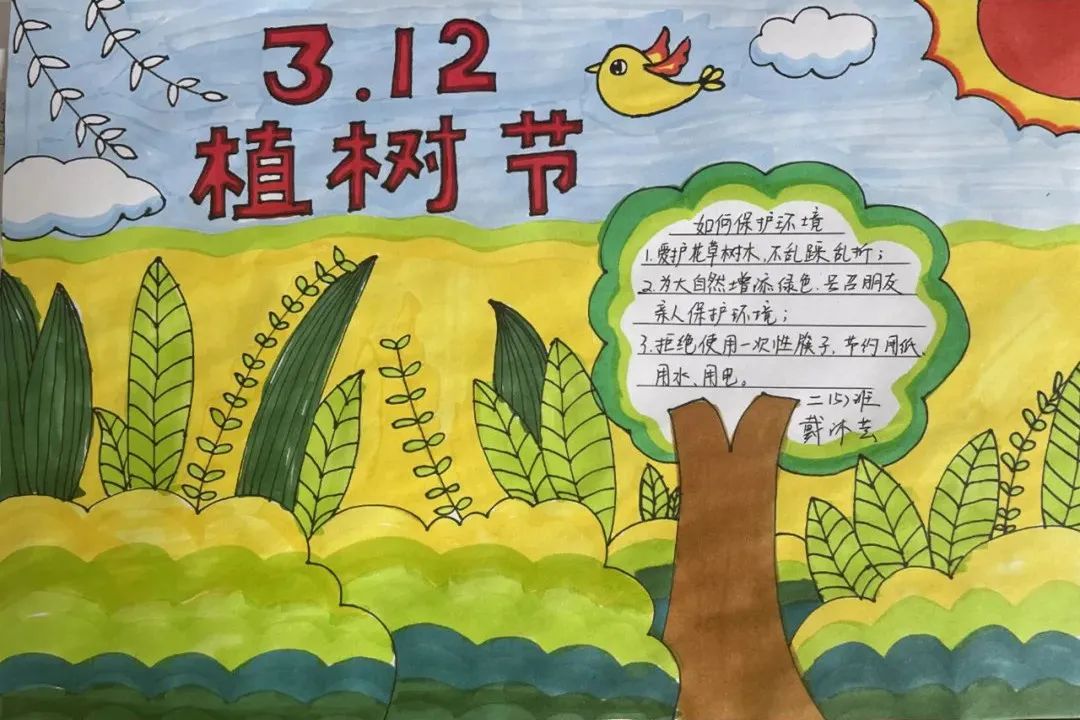 3.12
植树节
如何保护环境
1.爱护花草树木,不乱踩乱折;
2.为大自然增添绿色,号召朋友
亲人保护环境;
3.拒绝使用一次性筷子,节约用纸、
用水、用电。
二(5)班
戴沐芸